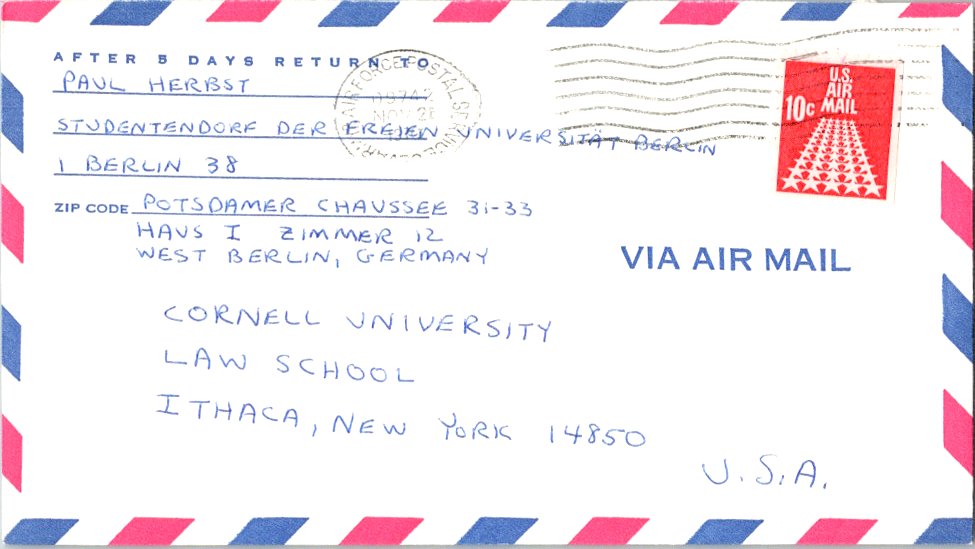 AFTER 5 DAYS RETURN TO
PAUL HERBST
STUDENTENDORF DER FREIEN UNIVERSITÄT BERLIN
1 BERLIN 38
ZIP CODE POTSDAMER CHAUSSEE 31-33
HAUS I ZIMMER 12
WEST BERLIN, GERMANY
AIR FORCE POSTAL SERVICE
09742
NOV
U.S.
AIR
MAIL
10c
VIA AIR MAIL
CORNELL UNIVERSITY
LAW SCHOOL
ITHACA, NEW YORK 14850
U.S.A.